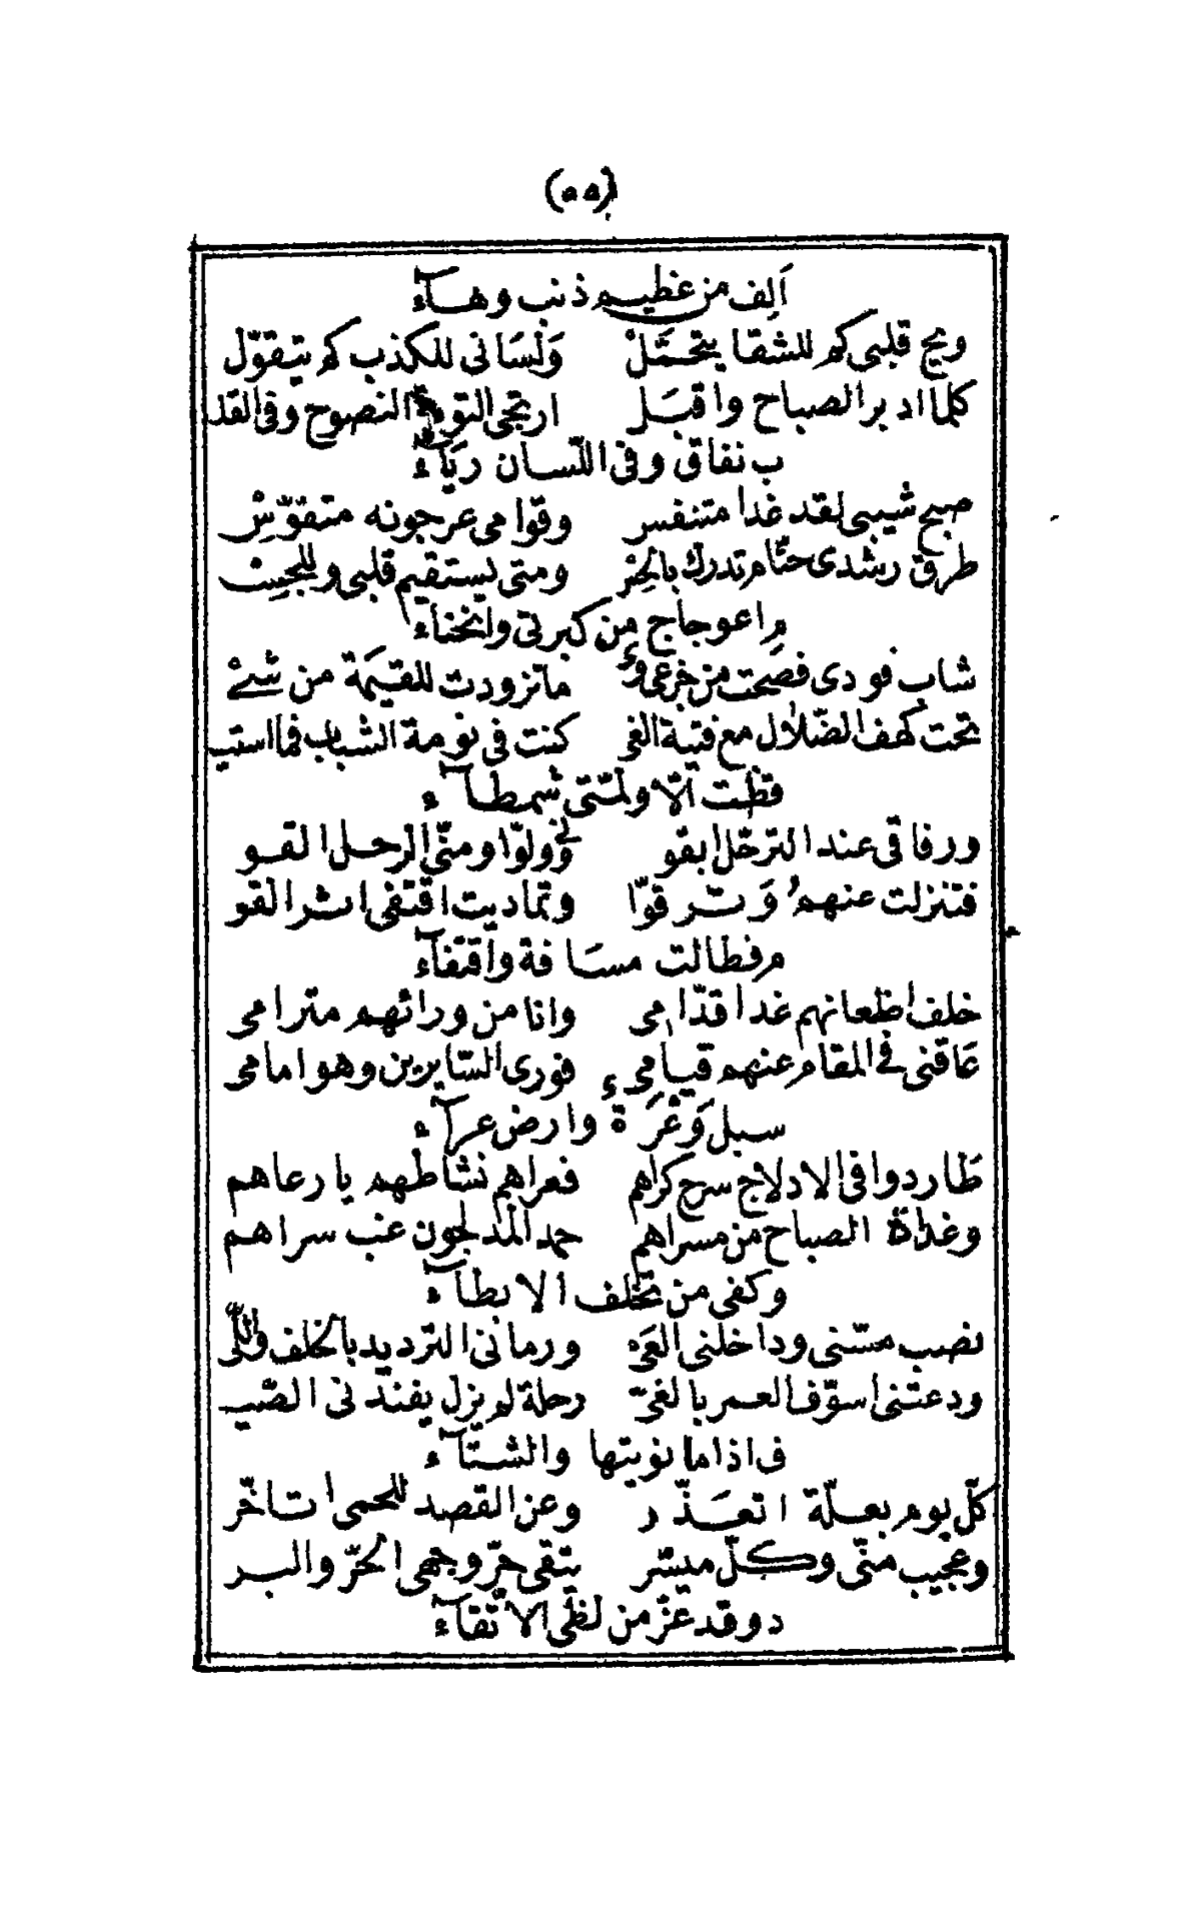 (٥٥)
اَلِف من غظيم ذنب وهآء
ويج قلبى كم للشقا يتحمَّلْ ولسَانى للكذب كم يتقوّل
كلما ادبر الصباح واقبَل ارتجى التوبة النصوح وفى القلـ
ب نفاق وفى اللّسان ريَآء
صبح شيبى لقد غدا متنفس وقوامى عرجونه متقوّس
طرق رشدى حتّام تدرك بالحِسْ ومتى يستقيم قلبى وللجسْـ
م اعوجاج من كبرتى وانحنآء
شاب فودى فصحت من جزعى وىْ ما تزودت للقيٰمَة من شئْ
تحت كهف الضّلال مع فتية الغى كنت فى نومة الشباب فما استيـ
قظت الّا ولمّتى شمطآء
ورفاقى عند الترحّل ابقو نى وولّوا ومنّى الرحل القو
فتنزلت عنهمُ وَتـرقوّا وتماديت اقتفى اثر القو
م فطالت مسَافة واقتفآء
خلف اظعانهم غدا قدّامى وانا من ورائهم مترامى
عاقنى فى المقام عنهم قيامى فورى السّايرين وهو امامى
سبل وَعْرَة وارض عرآء
طاردوا فى الادلاج سرح كراهم فعراهم نشاطهم يا رعاهم
وغداة الصباح من مسراهم حمد المدلجون غب سراهم
وكفى من تخلف الابطآء
نصب مسّنى وداخلنى العَىّ ورمانى الترديد بالخلف واللّى
ودعتنى اسوّف العمر بالغىّ رحلة لم يزل يفندنى الصّيـ
ف اذا ما نويتها والشتآء
كلّ يوم بعلّة اتعَذّر وعن القصد للحمى اتاخّر
وعجيب منّى وكلّ ميسّر يتقى حرّ وجهى الحرّ والبر
د وقد عزّ من لظى الاتّقآء